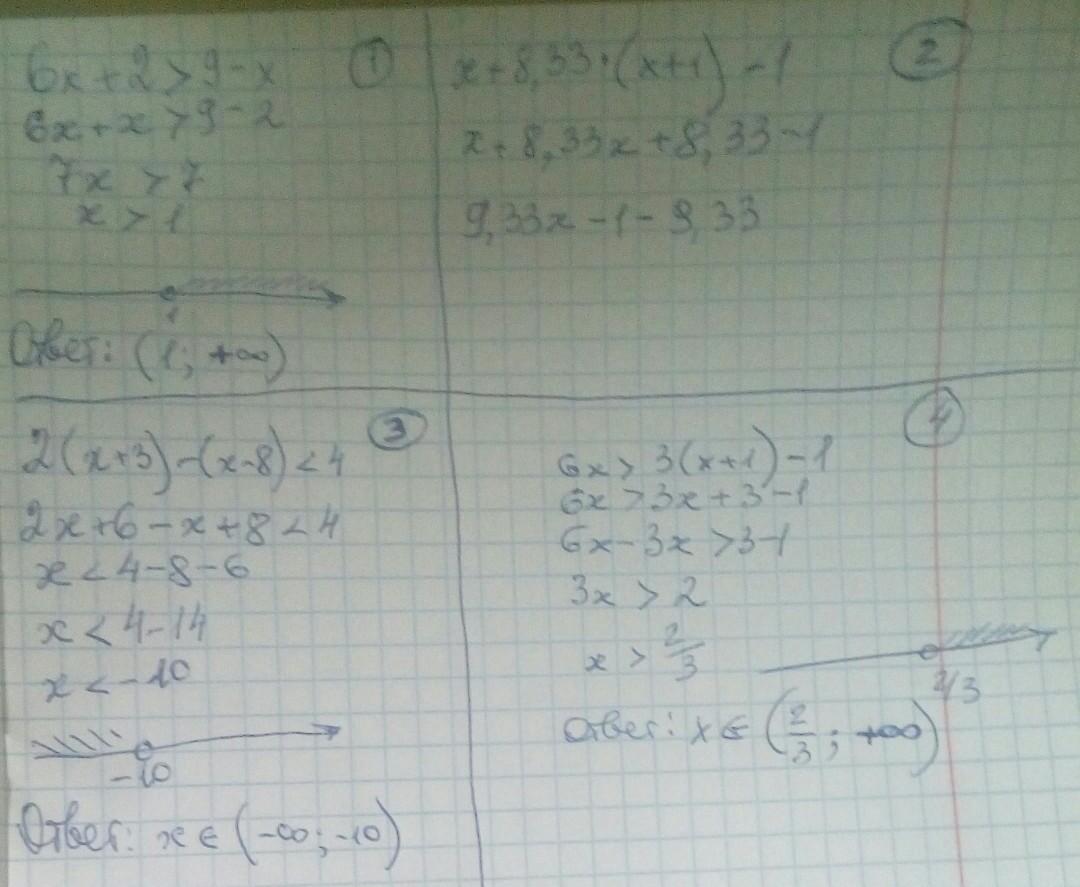 6x+2>9-x ①
6x+x>9-2
7x>7
x>1
1
Ответ: (1; +∞)
x+8,33·(x+1)-1 ②
x+8,33x+8,33-1
9,33x-1-8,33
2(x+3)-(x-8)<4 ③
2x+6-x+8<4
x<4-8-6
x<4-14
x<-10
-10
Ответ: x∈(-∞;-10)
④
6x>3(x+1)-1
6x>3x+3-1
6x-3x>3-1
3x>2
x>2/3
2/3
Ответ: x∈(2/3; +∞)